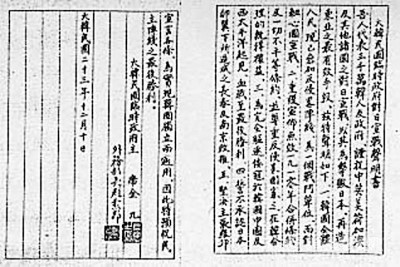 大韓民國臨時政府對日宣戰聲明書
吾人代表三千萬韓人及政府 謹祝中英美荷加濠
及其他諸國之對日宣戰、以其為擊敗日本、再造
東亞之最有效手段、茲特聲明如下、一韓國全體
人民、現已參加反侵畧陣綫、為一個戰鬥單位、而對
軸心國宣戰、二重復宣佈無效一九一零年合併條約
及一切不平等條約、並尊重反侵畧國家之在韓合
理的既得權益、三為完全驅逐倭寇於韓國中國及
西太平洋起見、血戰至最後勝利、四誓不承認日本
卵翼下所造成之長春及南京政權、五堅決主張羅邱
宣言各條、為實現韓國獨立而適用、因此特預祝民
主陣綫之最後勝利、
大韓民國臨時政府主席金九
外務部長趙素卬
大韓民國二十三年十二月十日